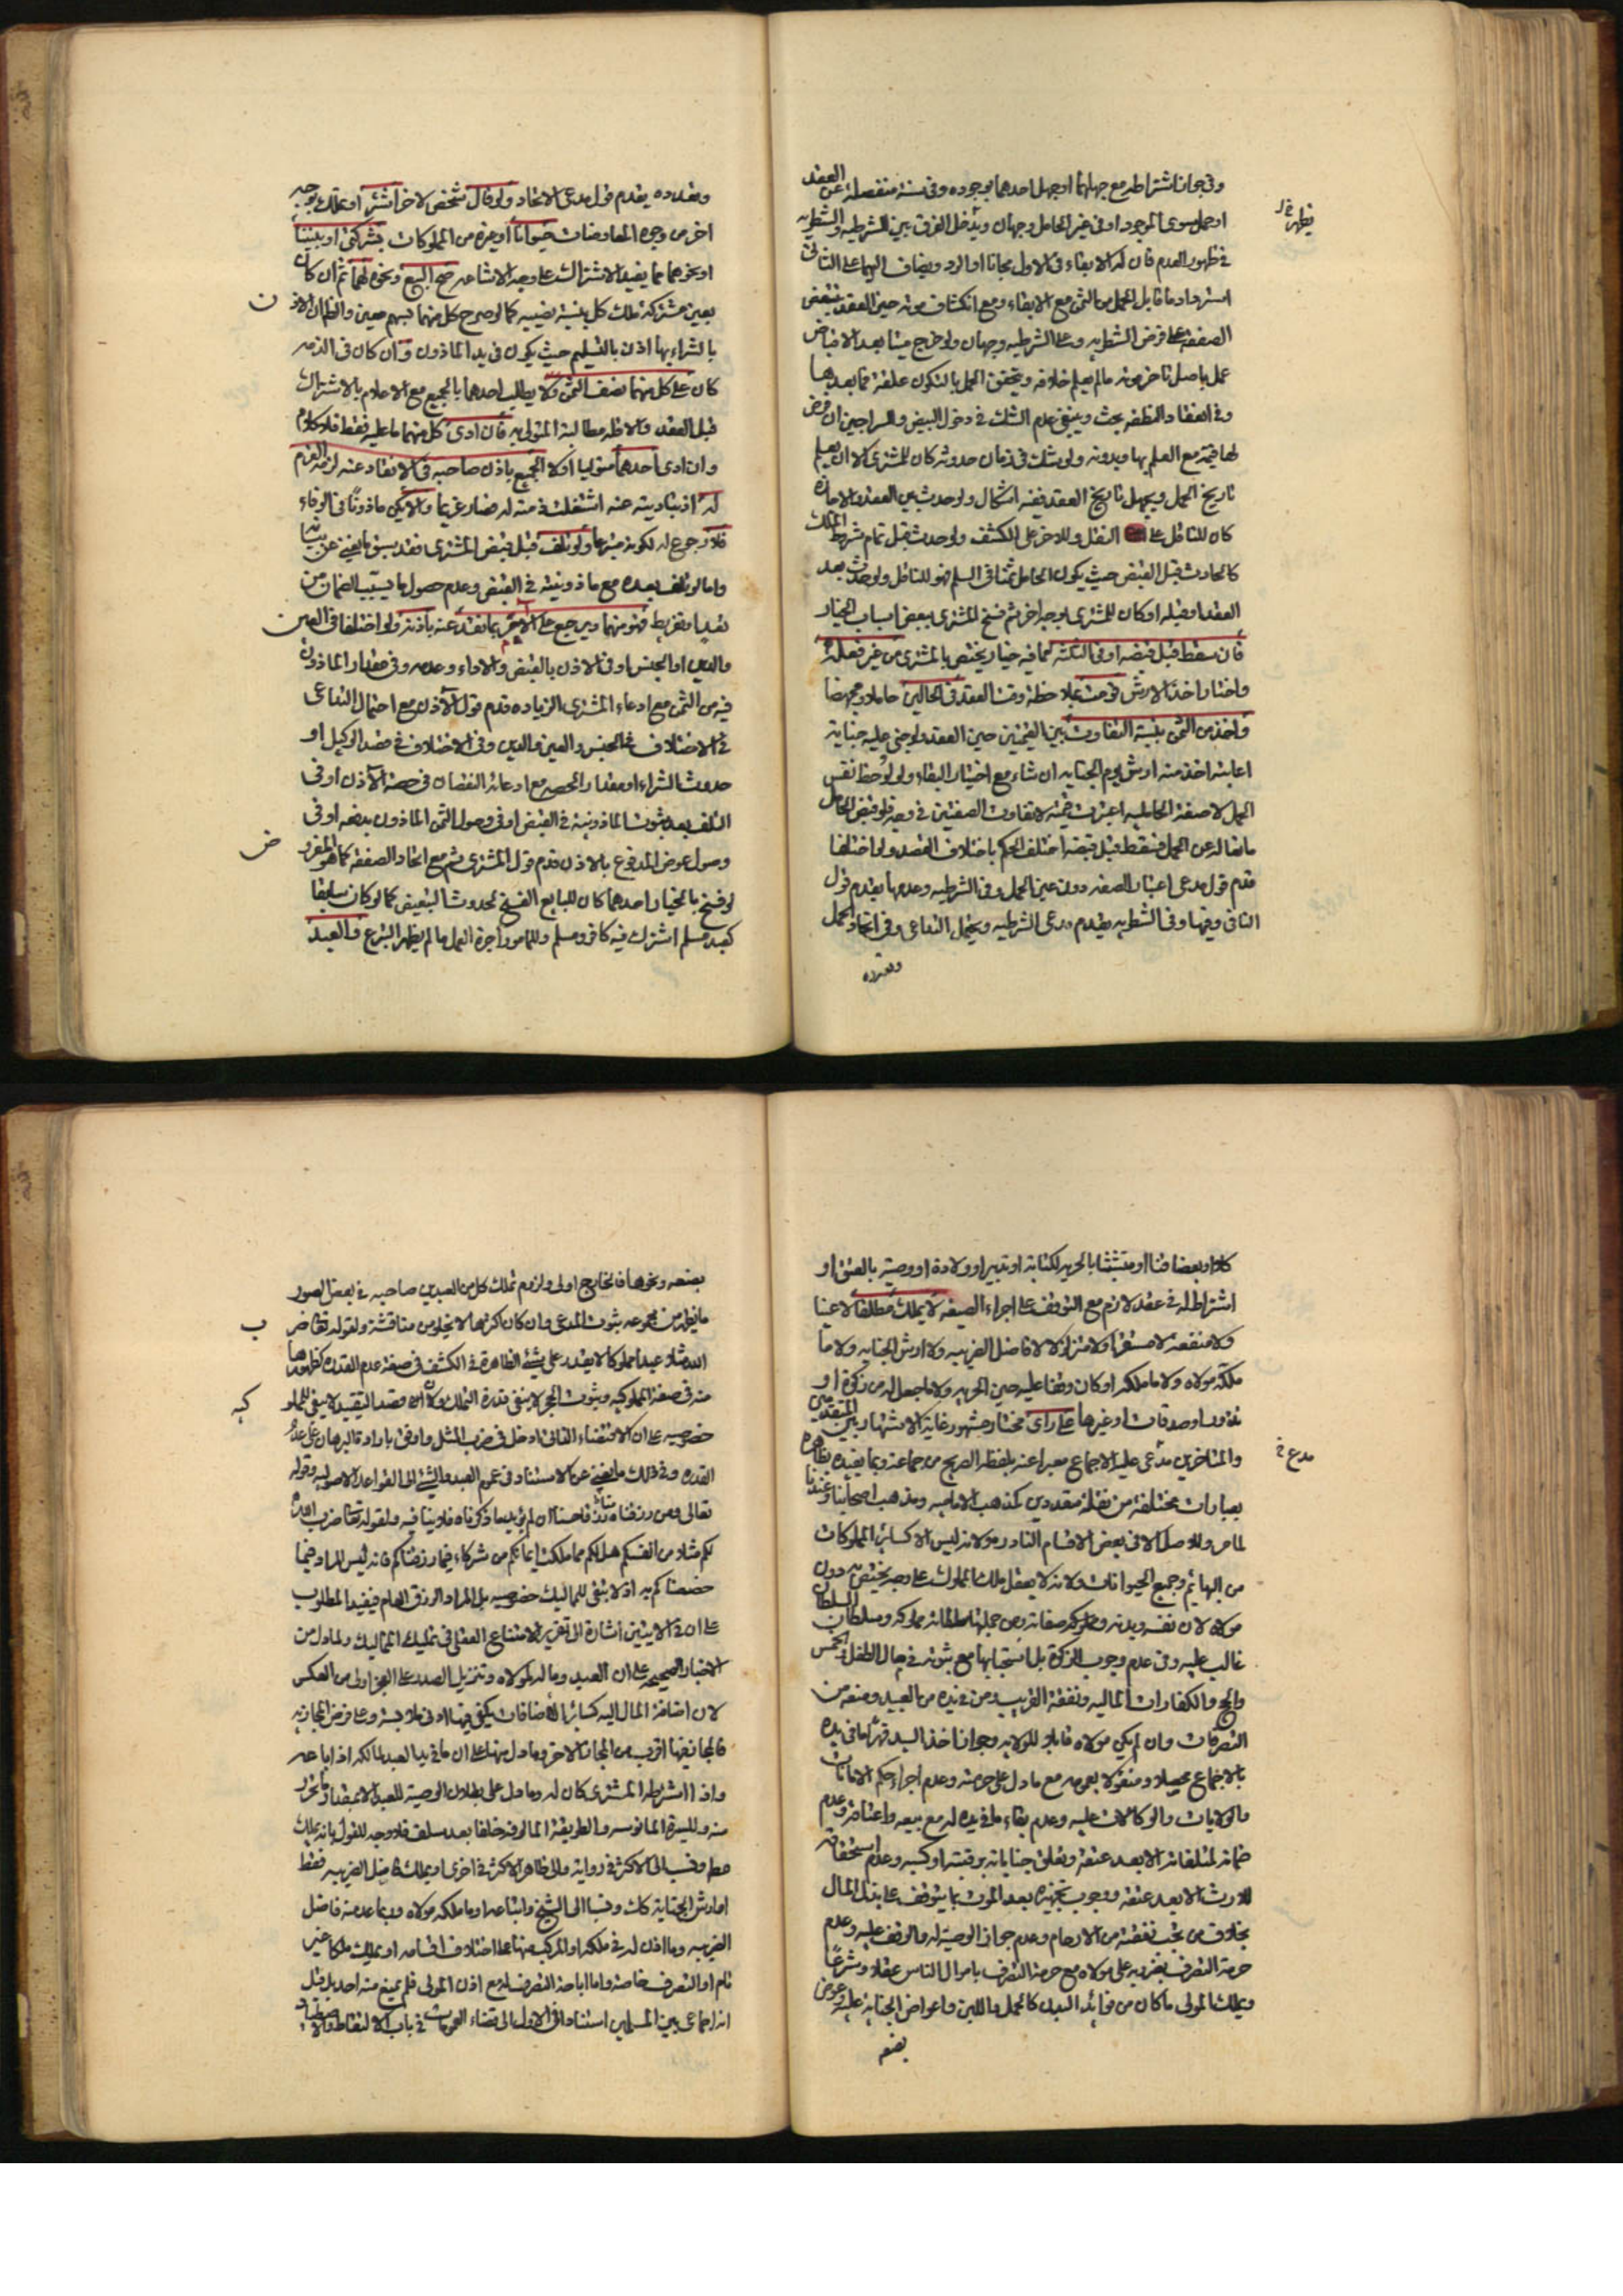 وفي جواز اشتراطه مع جهلهما او جهل احدهما بوجوده وفي سنة منفصلة عن العقد
او حمل سوى الموجود او في غير الحامل وجهان ويدخل الفرق بين الشرطيه والشطريه
في ظهور العدم فان له الابقاء في الاول مجانا او الرد ويضاف اليهما على الثاني
استرداد ما قابل الحمل من الثمن مع الابقاء ومع انكشاف موته حين العقد تتبعض
الصفقة على فرض الشطريه وعلى الشرطيه وجهان ولو خرج ميتا بعد الاقباض
عمل باصل تاخر موته ما لم يعلم خلافه ويتحقق الحمل بالتكون علقة فما بعدها
وفي انعقاد النطفه بحث وينبغي عدم الشك في دخول البيض والسراجين ان فرض
لها قيمة مع العلم بها وبدونه ولو شك في زمان حدوثه كان للمشتري الا ان يعلم
تاريخ الحمل ويجهل تاريخ العقد ففيه اشكال ولو حدث بين العقد والاجازه
كان للناقل على النقل وللاخر على الكشف ولو حدث قبل تمام شرط الملك
كالحادث قبل القبض حيث يكون الحامل ثمنا في السلم فهو للناقل ولو حدث بعد
العقد او قبله او كان للمشتري بوجه اخر ثم فسخ المشتري ببعض اسباب الخيار
فان سقط قبل قبضه او في الثلثة كما فيه خيار يختص بالمشتري من غير فعله
واختار اخذ الارش قومت بملاحظة وقت العقد في الحالين حاملا ومجهضا
واخذ من الثمن بنسبة التفاوت بين القيمتين حين العقد ولو جنى عليه جناية
اعابته اخذ منه ارش يوم الجنايه ان شاء مع اختيار البقاء ولو لوحظ نفس
الحمل لا صفة الحامليه اعتبرت قيمته لا تفاوت الصفتين في وجه ولو قبض الحامل
ما نقاله عن الحمل فسقط قبل قبضه اختلف الحكم باختلاف القصد ولو اختلفا
قدم قول مدعي اعتبار الصفه دون عين الحمل وفي الشرطيه وعدمها يقدم قول
النافي وفيها وفي الشطريه يقدم مدعي الشرطيه ويحتمل التداعي وفي اتحاد الحمل
وتعدده
وتعدده يقدم قول مدعي الاتحاد ولو قال شخص لاخر اشتر او تملك بوجه
اخر من وجوه المعاوضات حيوانا او غيره من المملوكات بشركتي او بيننا
او نحوهما مما يفيد الاشتراك على وجه الاشاعه صح البيع ونحوه لهما ثم ان كان
بعين مشتركة ملك كل بنسبة نصيبه كما لو صرح كل منهما بسهم معين والظاهر ان الاذن
بالشراء بها اذن بالتسليم حيث يكون في يد الماذون وان كان في الذمه
كان على كل منهما نصف الثمن ولا يطالب احدهما بالجميع مع الاعلام بالاشتراك
قبل العقد والاظهر مطالبة المتولي به فان ادى كل منهما ما عليه فقط فلا كلام
وان ادى احدهما متوليا او لا الجميع باذن صاحبه في الانقاد عنه لزمه الغرم
له اذ بتاديته عنه اشتغلت ذمته له فصار غريما والا يكن ماذونا في الوفاء
فلا رجوع له لكونه متبرعا ولو تلف قبل قبض المشتري فقد سبق ما يغني عن بيانه
واما لو تلف بعده مع ماذونيته في القبض وعدم حصول ما يسبب الضمان من
تعد او تفريط فهو منهما ويرجع على الاخر بما نقد عنه باذنه ولو اختلفا في العين
والدين او الجنس او في الاذن بالقبض والاداء وعدمه وفي مقدار الماذون
فيه من الثمن مع ادعاء المشتري الزياده قدم قول الآذن مع احتمال التداعي
في الاختلاف في الجنس والعين والدين وفي الاختلاف في قصد الوكيل او
حدوث الشراء او مقدار الحصه مع ادعائه النقصان في حصة الآذن او في
التلف بعد ثبوت الماذونية في القبض او في وصول الثمن الماذون بدفعه او في
وصول عوض المدفوع بالاذن قدم قول المشتري ثم مع اتحاد الصفقه كما هو المقرر
لو فسخ بالخيار احدهما كان للبايع الفسخ لحدوث التبعيض كما لو كان سابقا
كعبد مسلم اشترك فيه كافر ومسلم وللمامور اجرة العمل ما لم يظهر التبرع والعبد
كلا او بعضا قنا او متشبثا بالحريه لكتابة او تدبير او ولادة او وصية بالعتق او
اشتراط له في عقد لازم مع التوقف على اجراء الصيغه لا يملك مطلقا لا عينا
ولا منفعة لا مستقرا ولا متزلزلا لا فاضل الضريبه ولا ارش الجنايه ولا ما
ملكه مولاه ولا ما ملكه او كان وقفا عليه حين الحريه ولا ما جعل له من زكوة او
نذور او صدقات او غيرها على راى مختار مشهور غاية الاشتهار بين المتقدمين
والمتاخرين مدعى عليه الاجماع معبرا عنه بلفظه الصريح من جماعة وبما يفيده بظاهره
بعبارات مختلفة من نقلة متعددين كمذهب الاماميه ومذهب اصحابنا وعندنا
لما مر وللاصل الا في بعض الاقسام النادره ولانه ليس الا كسائر المملوكات
من البهائم وجميع الحيوانات ولانه لا يعقل ملك المملوك على وجه يختص به دون
مولاه لان نفسه وبدنه مملوكه وصفاته ومن جملتها سلطانه مملوكه وسلطان السلطان
غالب عليه وفي عدم وجوب الزكوة بل استحبابها مع ثبوته في مال الطفل والخمس
والحج والكفارات الماليه ونفقة القريب ومن في يده من العبيد ومنعه من
التصرفات وان لم يكن مولاه قابلا للولايه وجواز اخذ السيد قهرا ما في يده
بالاجماع محصلا ومنقولا بعمومه مع ما دل على حرمته وعدم اجراء حكم الامانات
والولايات والوكالات عليه وعدم بقاء ما في يده له مع بيعه واعتاقه وعدم
ضمانه لمتلفاته الا بعد عتقه وتعلق جناياته برقبته او كسبه وعدم استحقاقه
للارث الا بعد عتقه ووجوب تجهيزه بعد الموت بما يتوقف على بذل المال
بخلاف من تجب نفقته من الارحام وعدم جواز الوصية له والوقف عليه وعدم
حرمة التصرف بغير يد على مولاه مع حرمة التصرف باموال الناس عقلا وشرعا
ويملك المولى ما كان من فوائد البدن كالحمل واللبن واعواض الجنايه عليه وعوض
بضعه
بضعه ونحوها فالخارج اولى ولزوم تملك كل من العبدين صاحبه في بعض الصور
ما يظهر من مجموعه ثبوت المدعى وان كان اكثرها لا يخلو من مناقشة ولقوله تعالى ضرب
الله مثلا عبدا مملوكا لا يقدر على شئ الظاهرة في الكشف في صفة عدم القدره كظهورها
منه في صفة المملوكيه وثبوت الحجر لا ينفي قدرة التملك ولان قصد التقييد لا يبقي للمملوكيه
خصوصيه على ان الاقتضاء الذاتي ادخل في ضرب المثل واوفى بارادة البرهان على عدم
القدره وفي ذلك ما يغني عن الاستناد في عموم العبد والشئ الى القواعد الاصوليه وقوله
تعالى ومن رزقناه منا رزقا حسنا ان لم يؤيد ما ذكرناه فلا ينافيه ولقوله تعالى ضرب
لكم مثلا من انفسكم هل لكم مما ملكت ايمانكم من شركاء فيما رزقناكم فانه ليس المراد فيما
خصصناكم به اذ لا يبقى للمماليك خصوصيه بل المراد الرزق العام فيفيد المطلوب
على ان في الايتين اشارة الى تقرير الامتناع العقلي في تمليك المماليك ولما دل من
الاخبار الصحيحه على ان العبد وماله لمولاه وتنزيل الصدر على العجز اولى من العكس
لان اضافة المال اليه كسائر الاضافات يكفي فيها ادنى ملابسة وعلى فرض المجازيه
فالمجاز فيها اقرب من المجاز الاخر وما دل منها على ان ما في يد العبد لمالكه اذا باعه
واذا اشترطه المشتري كان له وما دل على بطلان الوصية للعبد الا بمقدار ما تحرر
منه وللسيرة المانوسه والطريقة المالوفه خلفا بعد سلف فلا وجه للقول بانه يملك
مطلقا ونسب الى الاكثر في رواية والى ظاهر الاكثر في اخرى او يملك فاضل الضريبه فقط
او ارش الجناية كذلك ونسبا الى الشيخ واتباعه او ما ملكه مولاه وربما عد منه فاضل
الضريبه وما اذن له في ملكه او المركب منها على اختلاف اقسامه او يملك ملكا غير
تام او التصرف خاصة واما اباحة التصرف له مع اذن المولى فلم يمنع منه احد بل قيل
انه اجماعي بين المسلمين استنادا في الاول الى قضاء العمومات في باب الالتقاط والاصطياد